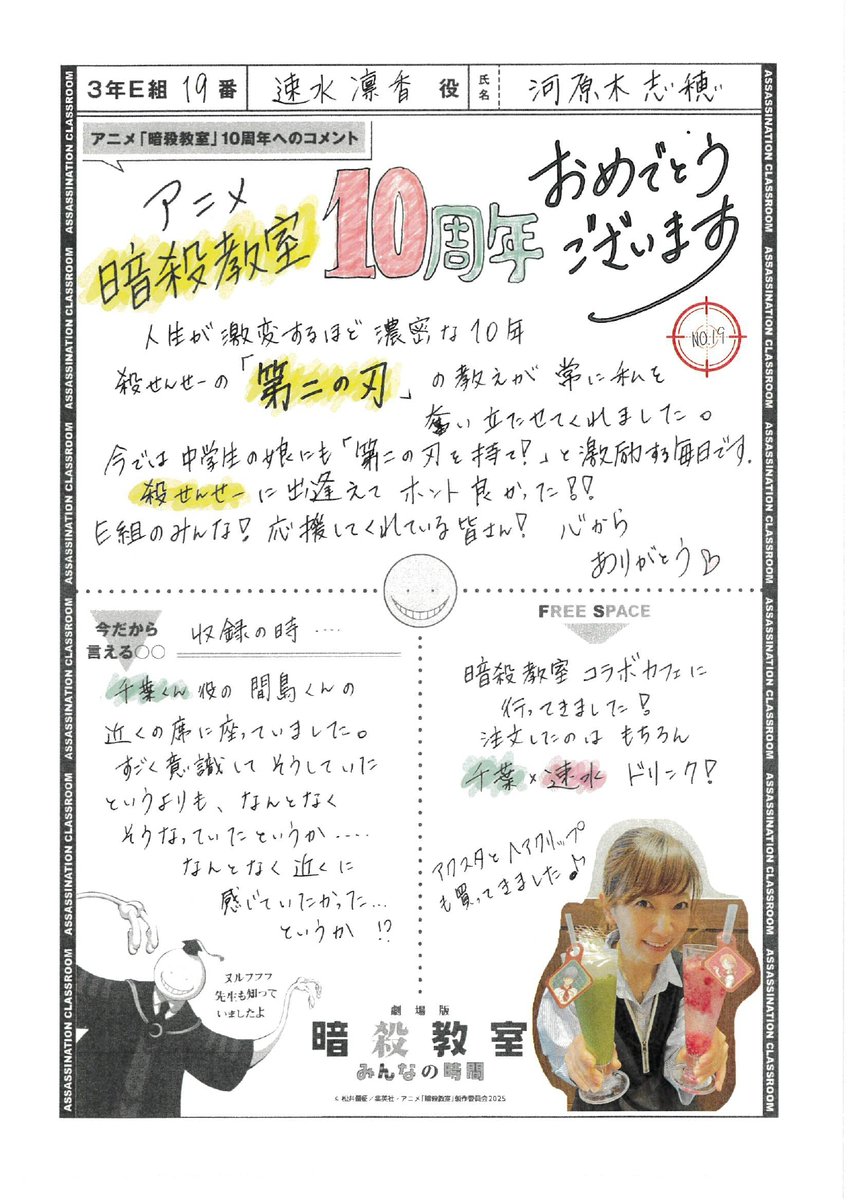 3年E組 19番 速水 凛香 役 氏名 河原木 志穂
アニメ「暗殺教室」10周年へのコメント
アニメ
暗殺教室 10周年 おめでとう
ございます
NO.19
人生が激変するほど濃密な10年
殺せんせーの「第二の刃」の教えが常に私を
奮い立たせてくれました。
今では中学生の娘にも「第二の刃を持て!」と激励する毎日です.
殺せんせーに出逢えてホント良かった!!
E組のみんな!応援してくれている皆さん!心から
ありがとう
今だから
言える○○
収録の時……
千葉くん役の間島くんの
近くの席に座っていました。
すごく意識してそうしていた
というよりも、なんとなく
そうなっていたというか……
なんとなく近くに
感じていたかった…
というか !?
ヌルフフフ
先生も知って
いましたよ
FREE SPACE
暗殺教室 コラボカフェに
行ってきました!
注文したのは もちろん
千葉×速水 ドリンク!
アクスタとヘアクリップ
も買ってきました♪
劇場版
暗殺教室
みんなの時間
©松井優征/集英社・アニメ「暗殺教室」製作委員会2025
ASSASSINATION CLASSROOM ASSASSINATION CLASSROOM ASSASSINATION CLASSROOM ASSASSINATION CLASSROOM ASSASSINATION CLASSROOM ASSASSINATION CLASSROOM
ASSASSINATION CLASSROOM ASSASSINATION CLASSROOM ASSASSINATION CLASSROOM ASSASSINATION CLASSROOM ASSASSINATION CLASSROOM ASSASSINATION CLASSROOM